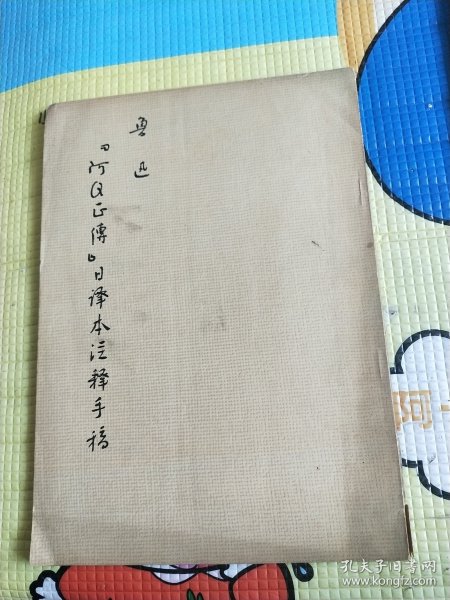 魯迅
『阿Q正傳』日译本注释手稿
阿
孔夫子旧书网
www.kongfz.com